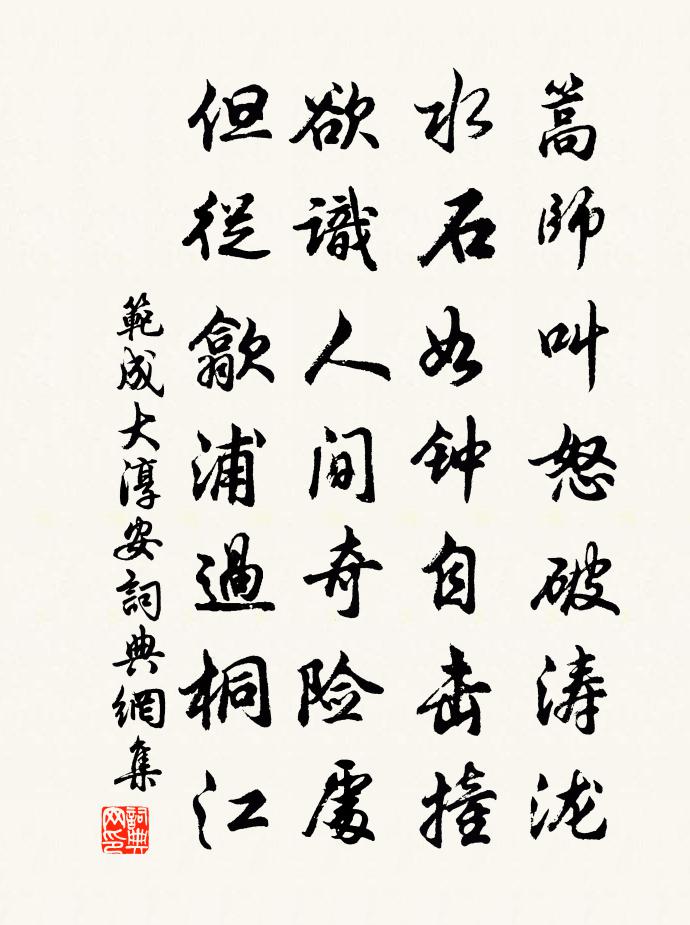 篙師叫怒破涛泷
水石如钟自击撞
欲識人间奇险處
但從歙浦過桐江
範成大淳安詞典網集
詞典网印